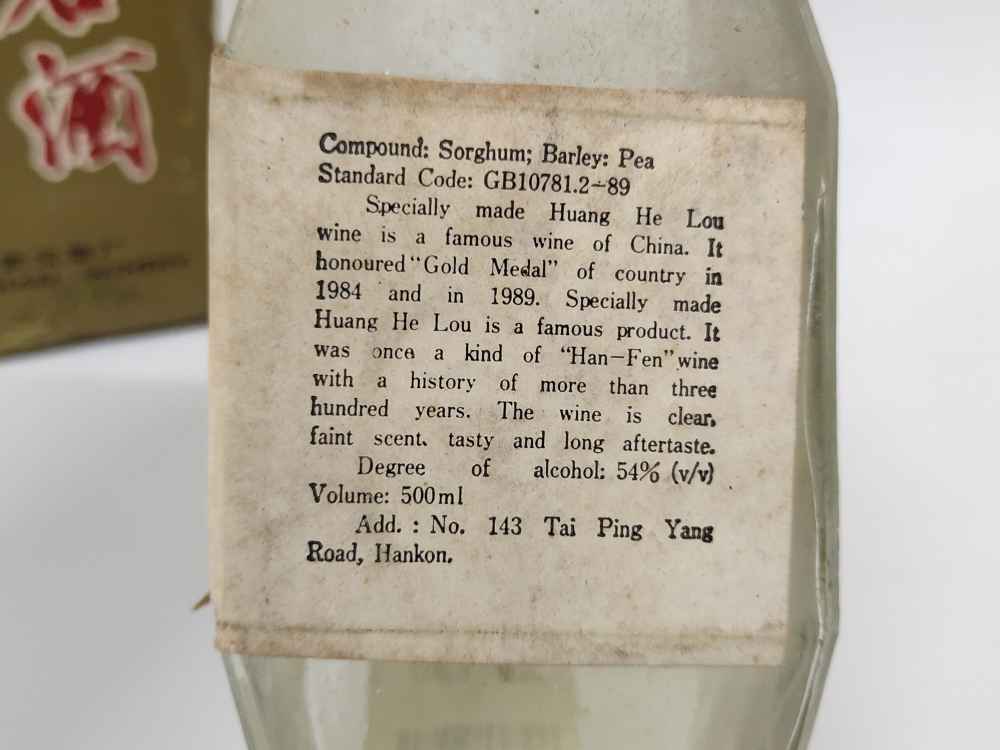 酒
Compound: Sorghum; Barley: Pea
Standard Code: GB10781.2-89
Specially made Huang He Lou
wine is a famous wine of China. It
honoured "Gold Medal" of country in
1984 and in 1989. Specially made
Huang He Lou is a famous product. It
was once a kind of "Han-Fen" wine
with a history of more than three
hundred years. The wine is clear,
faint scent、tasty and long aftertaste.
Degree of alcohol: 54% (v/v)
Volume: 500ml
Add. : No. 143 Tai Ping Yang
Road, Hankon.